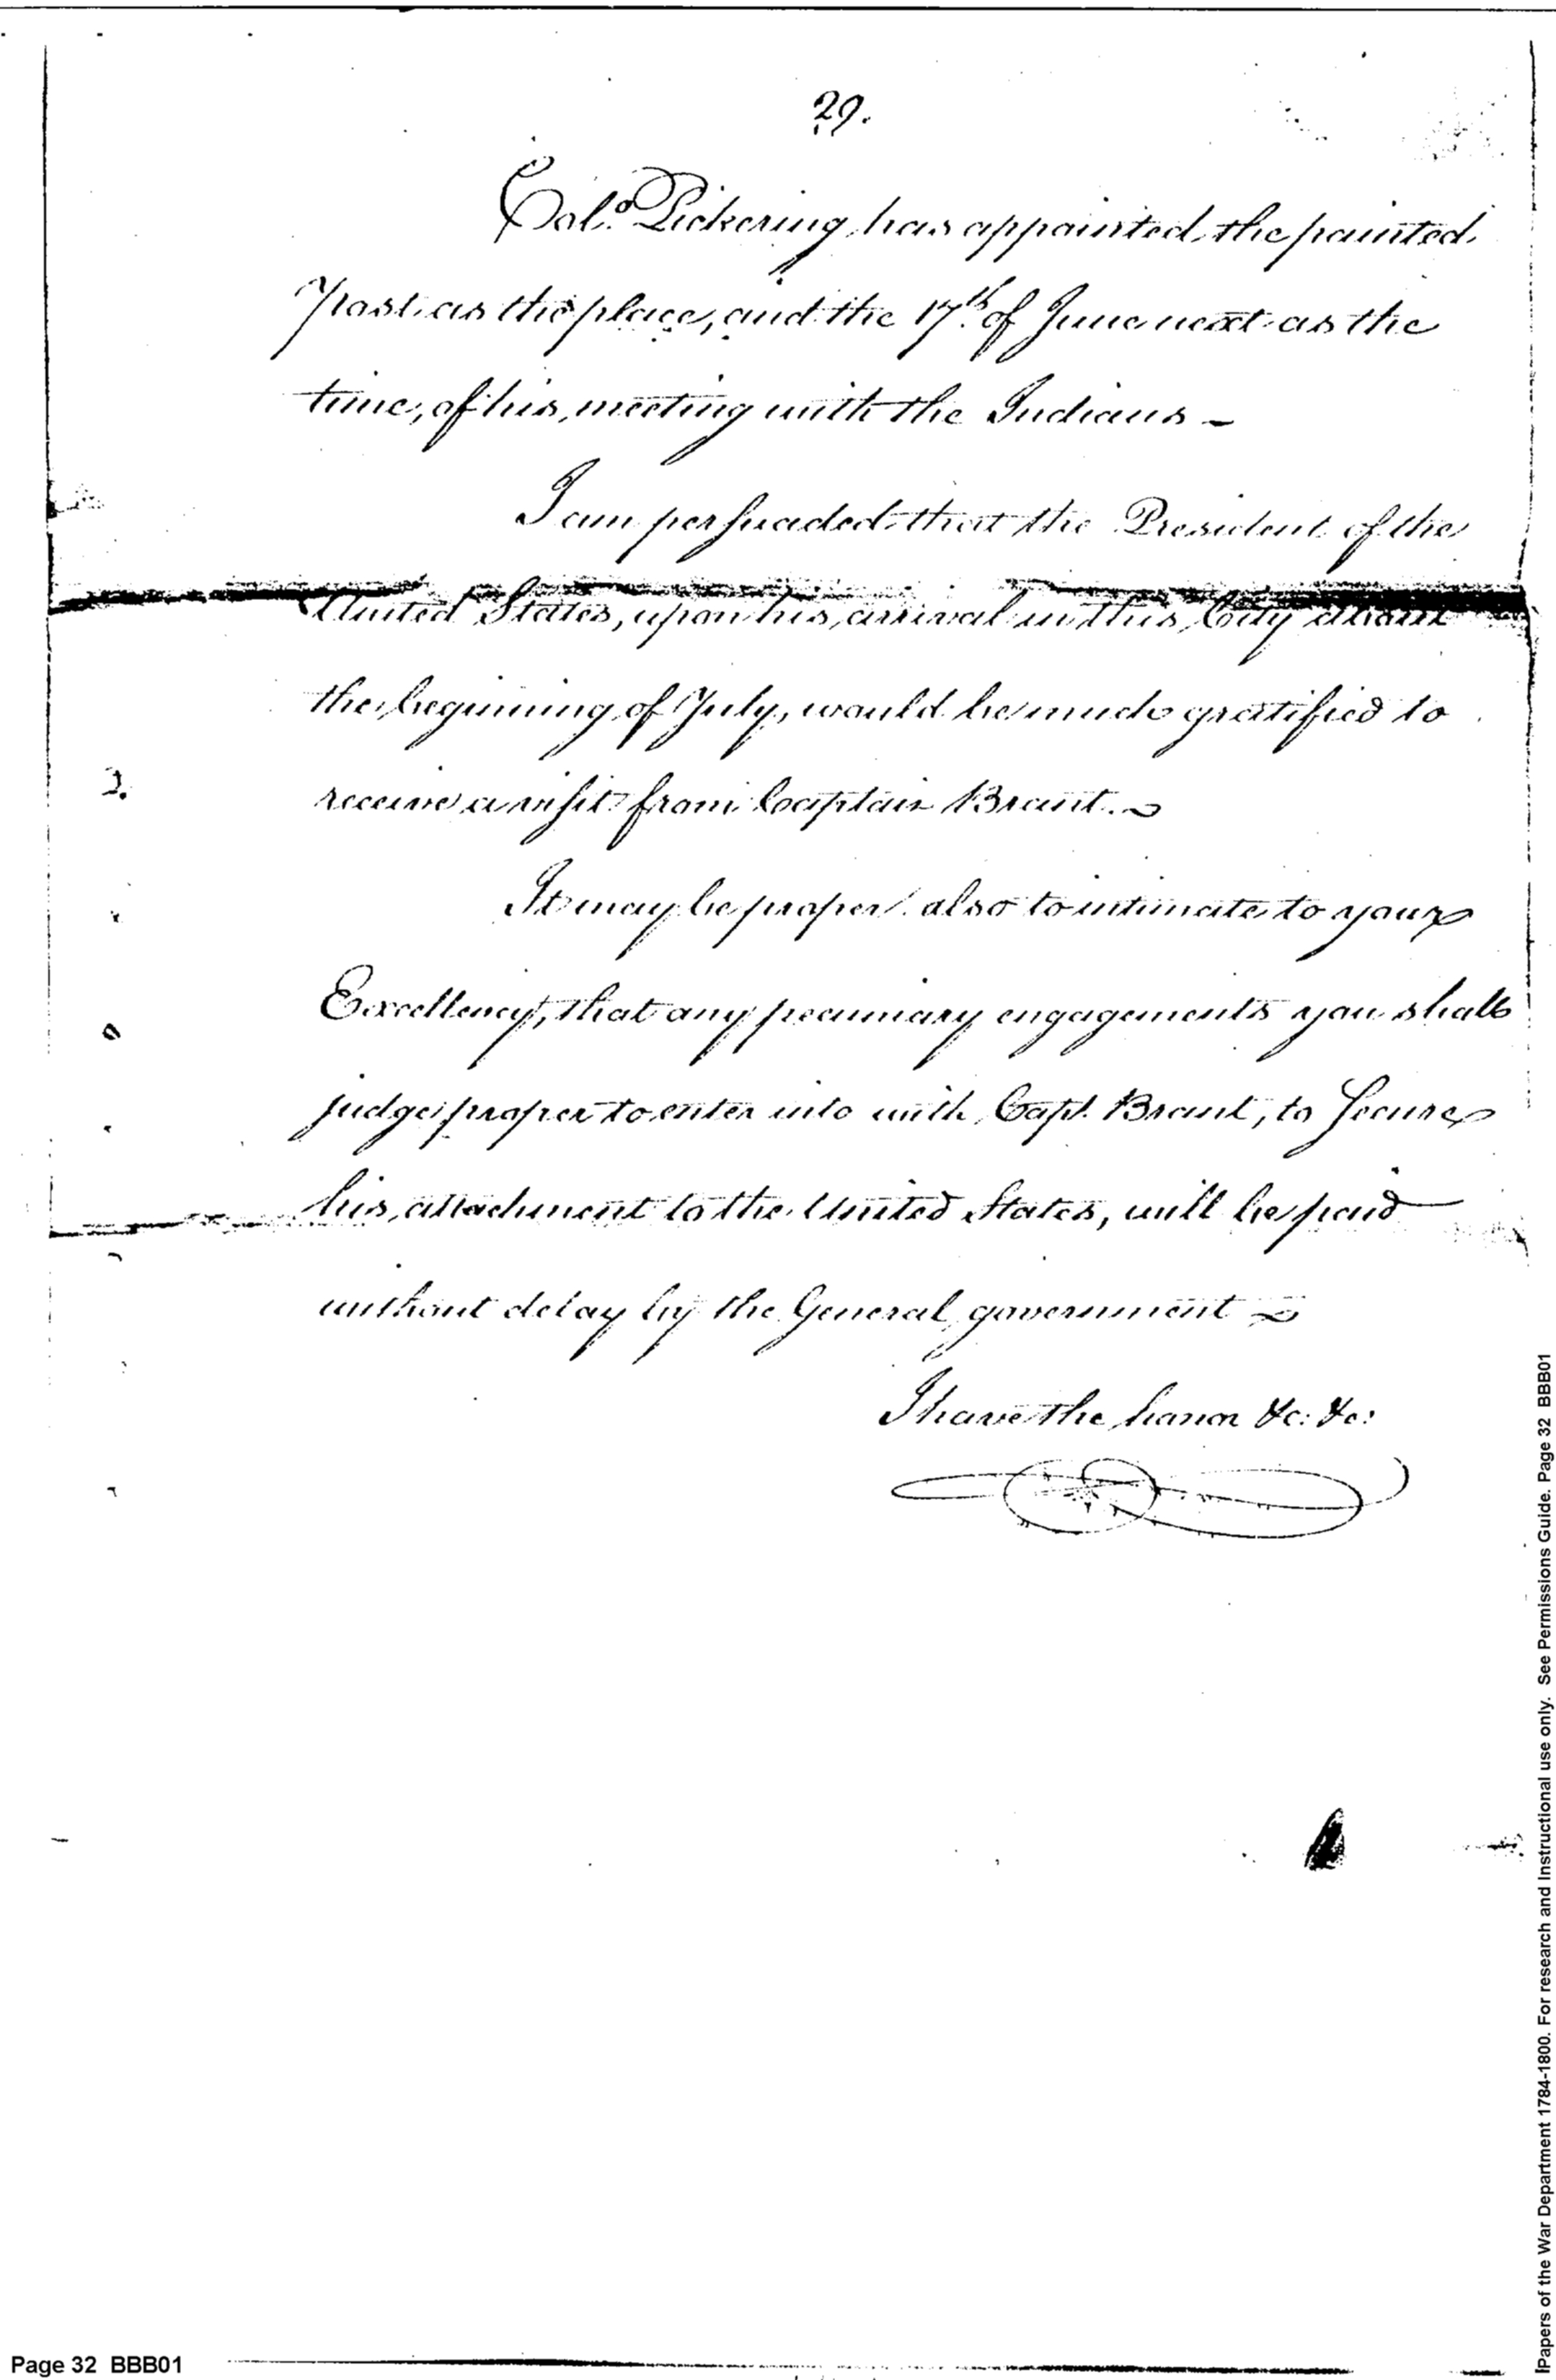 29.
Col.o Pickering has appointed the painted
Post as the place, and the 17th of June next as the
time, of his meeting with the Indians -
I am persuaded that the President of the
United States, upon his arrival in this City about
the beginning of July, would be much gratified to
receive a visit from Captain Brant.
It may be proper also to intimate to your
Excellency, that any pecuniary engagements you shall
judge proper to enter into with Capt. Brant, to secure
his attachment to the United States, will be paid
without delay by the General government
I have the honor &c: &c:
Page 32 BBB01
Papers of the War Department 1784-1800. For research and Instructional use only. See Permissions Guide. Page 32 BBB01